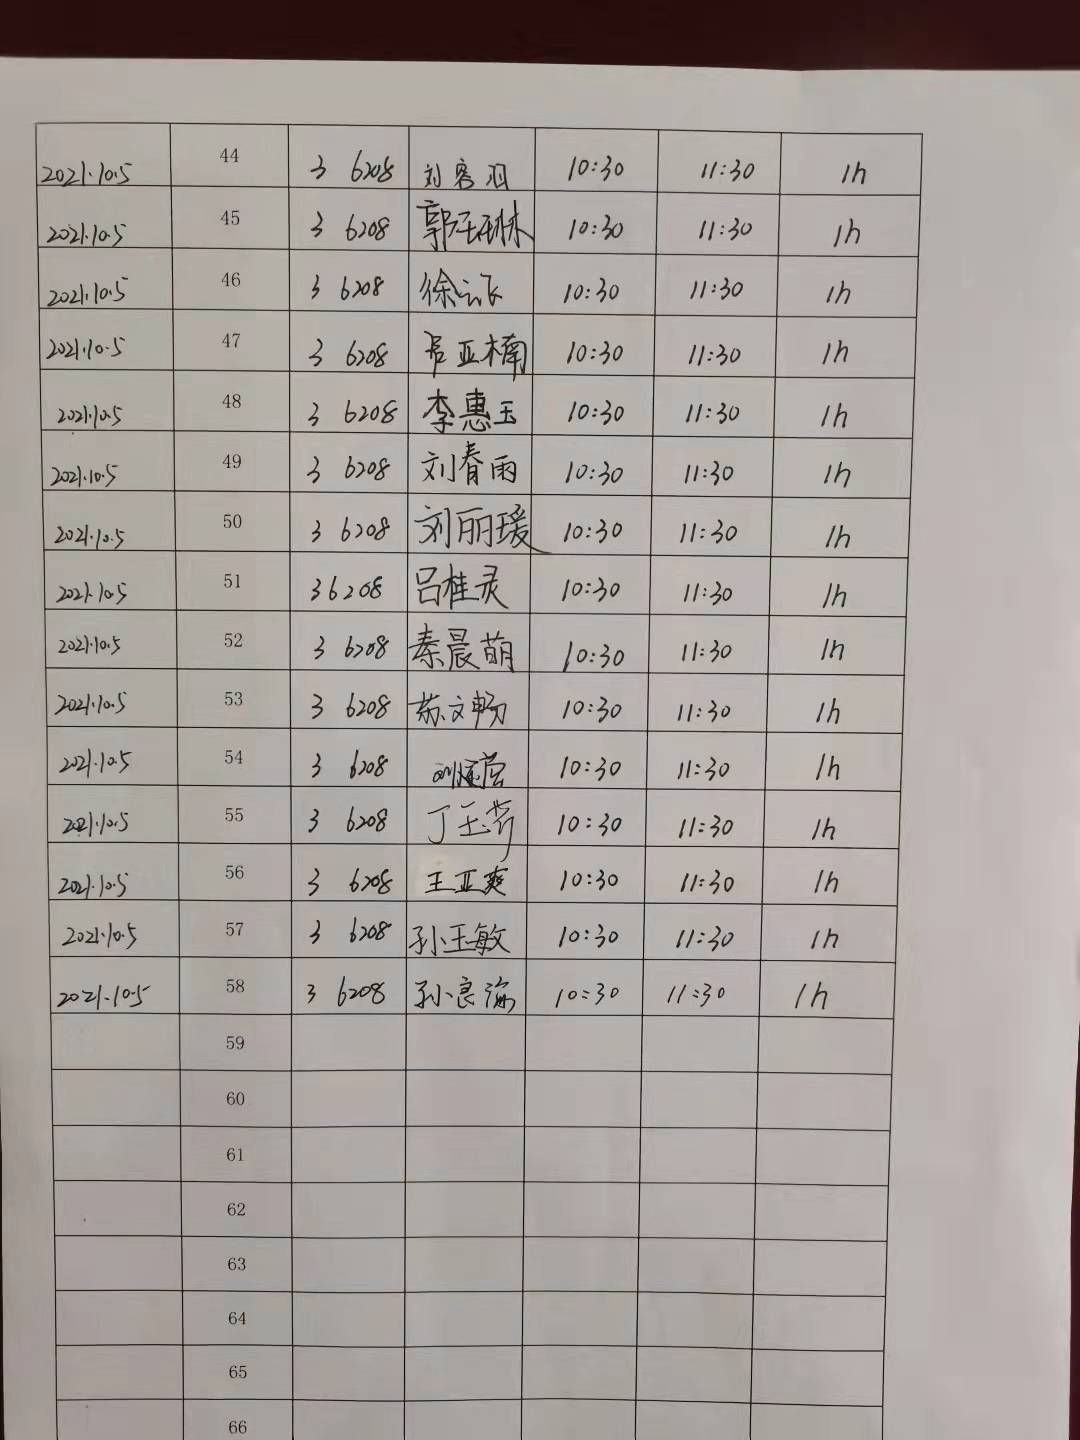 2021.10.5 44 3 6208 刘容羽 10:30 11:30 1h
2021.10.5 45 3 6208 郭玨琳 10:30 11:30 1h
2021.10.5 46 3 6208 徐云飞 10:30 11:30 1h
2021.10.5 47 3 6208 亚楠 10:30 11:30 1h
2021.10.5 48 3 6208 李惠玉 10:30 11:30 1h
2021.10.5 49 3 6208 刘春雨 10:30 11:30 1h
2021.10.5 50 3 6208 刘丽瑗 10:30 11:30 1h
2021.10.5 51 3 6208 吕桂灵 10:30 11:30 1h
2021.10.5 52 3 6208 秦晨萌 10:30 11:30 1h
2021.10.5 53 3 6208 苏文畅 10:30 11:30 1h
2021.10.5 54 3 6208 10:30 11:30 1h
2021.10.5 55 3 6208 丁玉芳 10:30 11:30 1h
2021.10.5 56 3 6208 王亚爽 10:30 11:30 1h
2021.10.5 57 3 6208 孙玉敏 10:30 11:30 1h
2021.10.5 58 3 6208 孙良海 10:30 11:30 1h
59
60
61
62
63
64
65
66